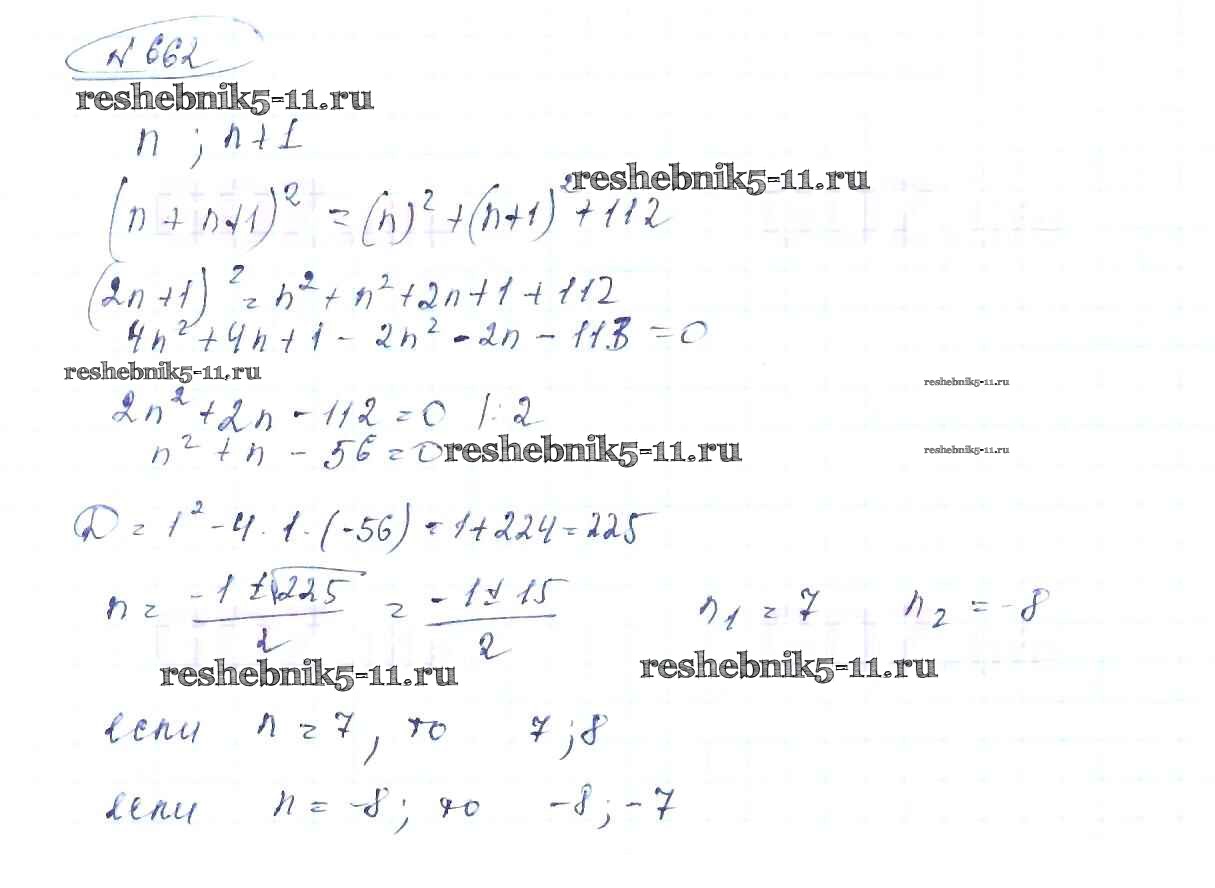 № 662
reshebnik5-11.ru
n ; n+1
reshebnik5-11.ru
(n + n+1)² = (n)² + (n+1)² + 112
(2n+1)² = n² + n² + 2n + 1 + 112
4n² + 4n + 1 - 2n² - 2n - 113 = 0
reshebnik5-11.ru
reshebnik5-11.ru
2n² + 2n - 112 = 0 |: 2
n² + n - 56 = 0 reshebnik5-11.ru
reshebnik5-11.ru
D = 1² - 4 · 1 · (-56) = 1 + 224 = 225
n = (-1 ± √225)/2 = (-1 ± 15)/2 n₁ = 7 n₂ = -8
reshebnik5-11.ru
reshebnik5-11.ru
если n = 7, то 7; 8
если n = -8; то -8; -7